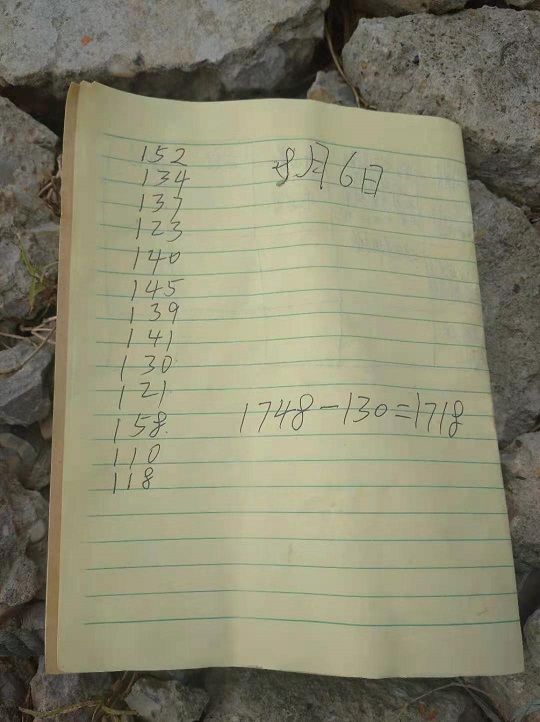 152
8月6日
134
137
123
140
145
139
141
130
121
158
1748-130=1718
110
118